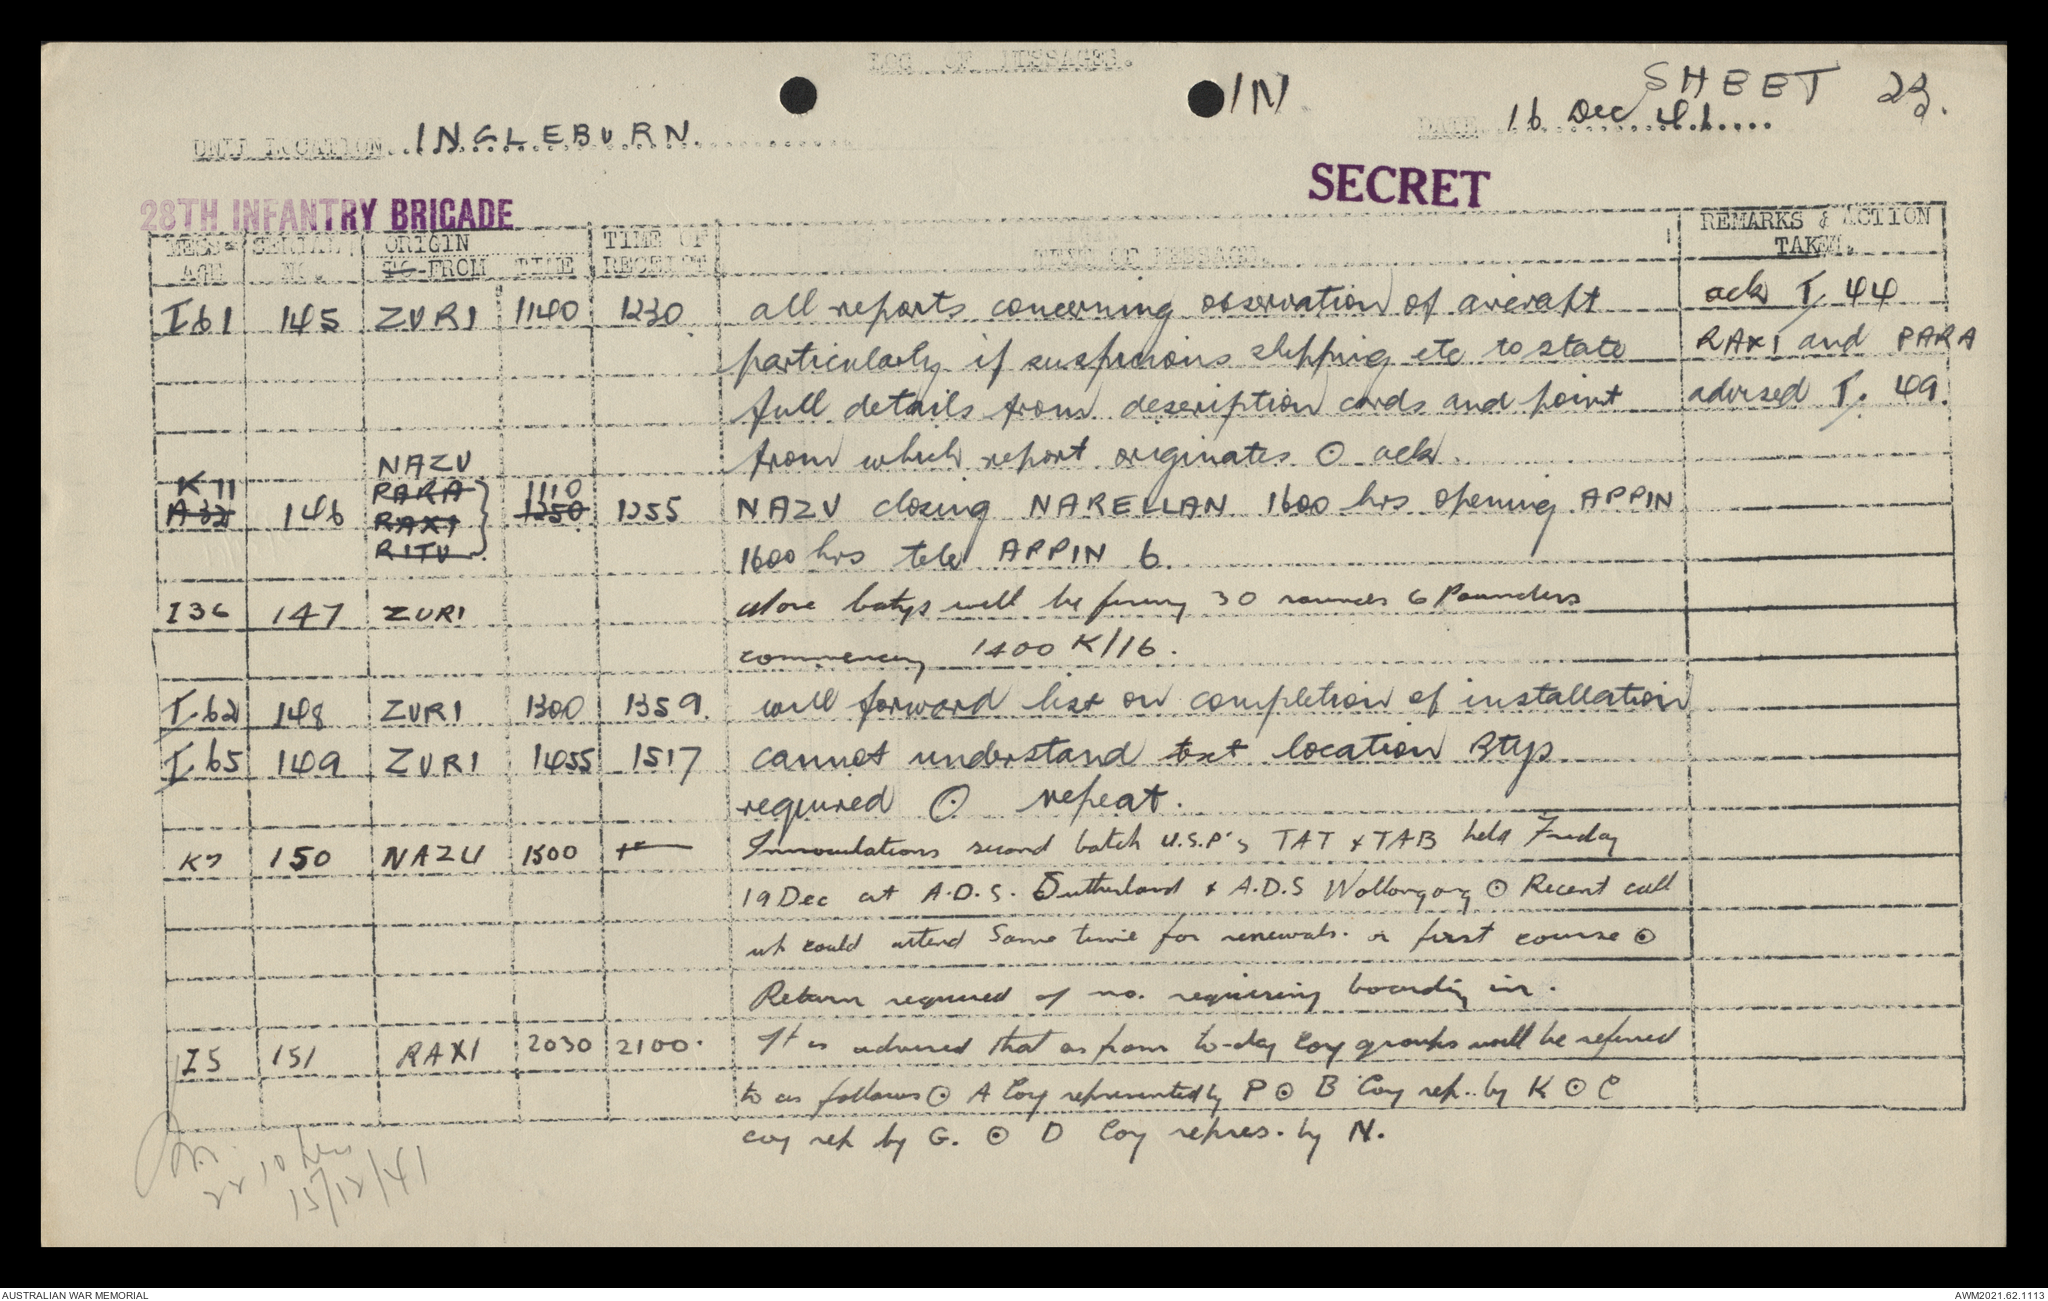 LOG OF MESSAGES.
IN
SHEET 23.
UNIT LOCATION. INGLEBURN
DATE 16 Dec 41
SECRET
28TH INFANTRY BRIGADE
MESS- AGE SERIAL NO. ORIGIN TO-FROM TIME TIME OF RECEIPT TEXT OF MESSAGE. REMARKS & ACTION TAKEN.
I 61 145 ZURI 1140 1230 all reports concerning observation of aircraft ack I 44
particularly if suspicious shipping etc to state RAXI and PARA
full details from description cards and point advised I. 49.
from which report originates ⊙ ack.
K 11 A 32 146 NAZU PARA RAXI RITU 1110 1250 1255 NAZU closing NARELLAN 1600 hrs opening APPIN
1600 hrs tele APPIN 6.
I 36 147 ZURI batys will be firing 30 rounds 6 Pounders
commencing 1400 K/16.
I 62 148 ZURI 1300 1359 will forward list on completion of installation
I 65 149 ZURI 1455 1517 cannot understand text location Btys
required ⊙ repeat.
K7 150 NAZU 1500 Innoculations second batch U.S.P's TAT & TAB held Friday
19 Dec at A.D.S. Sutherland & A.D.S Wollongong ⊙ Recent call
up could attend same time for renewals. or first course ⊙
Return required of no. requiring boarding in.
I 5 151 RAXI 2030 2100. It is advised that as from to-day Coy groups will be referred
to as follows ⊙ A Coy represented by P ⊙ B Coy rep. by K ⊙ C
coy rep by G. ⊙ D Coy repres. by N.
2210 hrs
15/12/41
AUSTRALIAN WAR MEMORIAL
AWM2021.62.1113